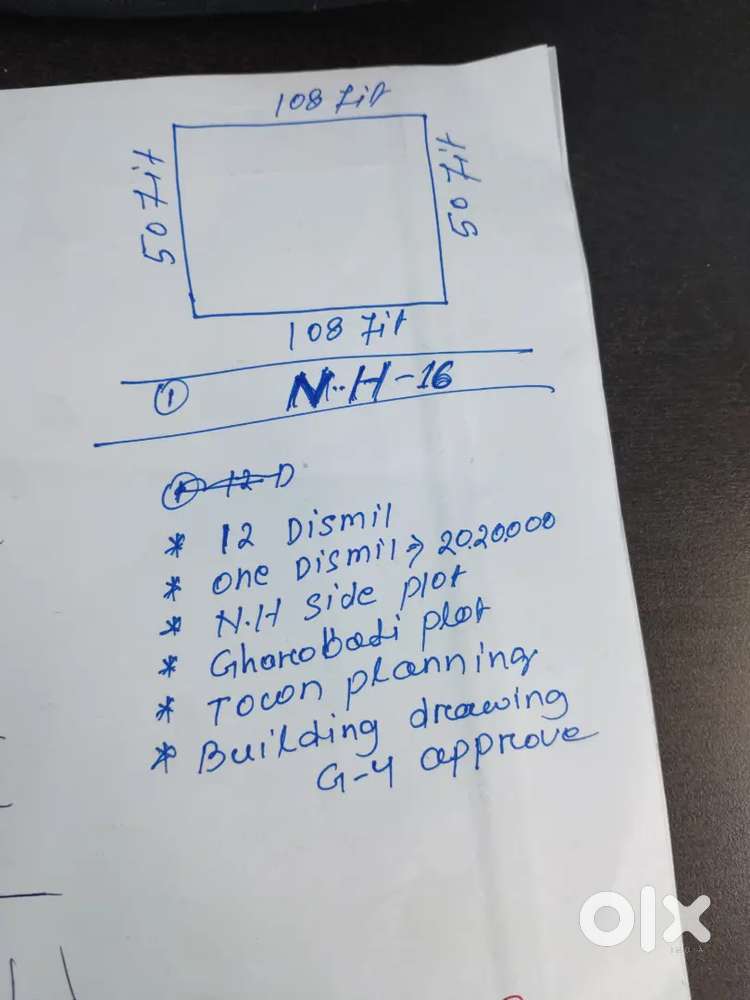 108 Fit
50 Fit
50 Fit
108 Fit
① N.H-16
① 12 D
* 12 Dismil
* One Dismil → 20.20.000
* N.H side plot
* Gharobadi plot
* Town planning
* Building drawing
G-4 approve
olx
INDIA